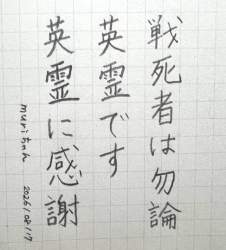 戦死者は勿論
英霊です
英霊に感謝
muriちゃん 2026/04/17